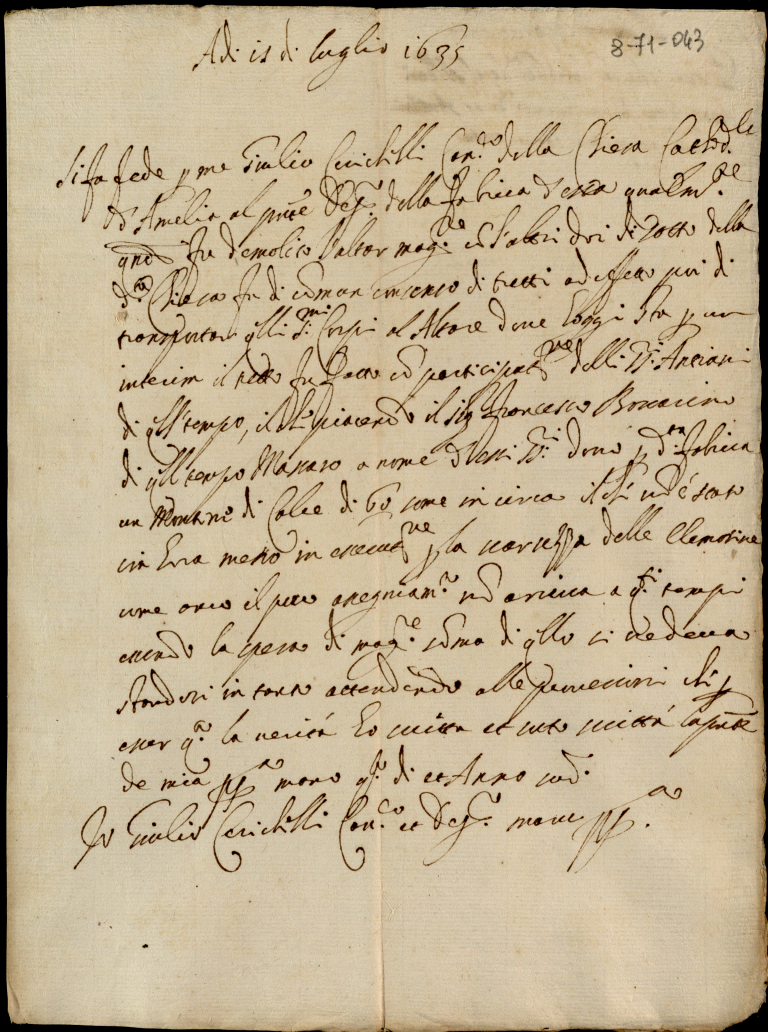 Adi is di luglio 1635
8-71-043
Si fa fede p me Giulio Cerichelli Can.co della Chiesa Cathed.le
d'Amelia al pnte Dep.to della fabrica d'essa qualm.te
qndo fu demolito l'altar mag.re co l'altri doi di sotto della
d.a Chiesa fu di comun consenso di tutti ad effetto poi di
transportar qlli S.mi Corpi al Altare dove hoggi sta p un
interim il tutto fu fatto co participat.ne delli SS.i Antiani
di qll tempo, il che piacendo il Sig Francesco
di qll tempo Massaro a nome d'essi SS.ri dono p d.ta fabrica
un di Calce di 60 some in circa il che nō è stato
in hora messo in execut.ne p la scarsezza delle Elemosine
come anco il poco assegniam.to nō arriva a q.ti tempi
essendo la spesa di mag.re soma di qllo si vedeva
standosi in tanto attendendo alle provisioni che p
esser q.a la verità ho scritta et sotto scritta la pnte
de mia pp.a mano q.o di et Anno sud.o
Io Giulio Cerichelli Can.co et Dep.to mano pp.a